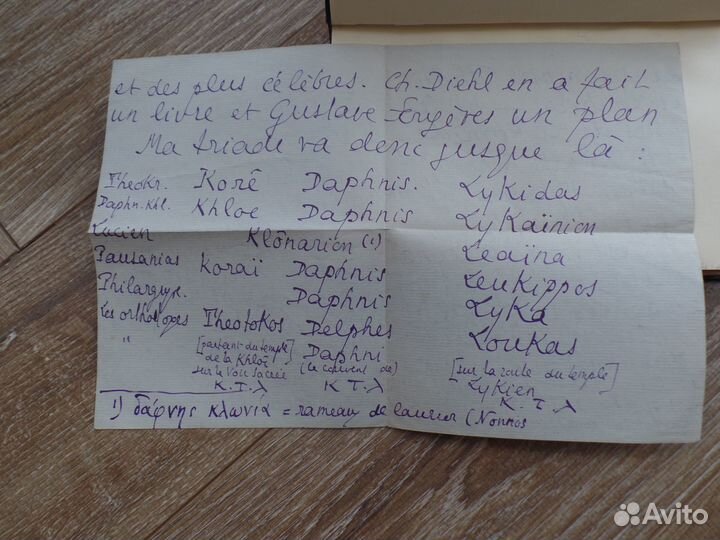 et des plus célèbres. Ch. Diehl en a fait
un livre et Gustave Fougères un plan
Ma triade va donc jusque là :
Theokr. Korê Daphnis. Lykidas
Daphn. Khl. Khloe Daphnis Lykaïnion
Lucien Klônarion (1) Leaïna
Pausanias Koraï Daphnis Leukippos
Philargyr. Daphnis Lyka
Les orthodoxes Theotokos Delphes Loukas
" [partant du temple de la Khloê sur la Voie Sacrée Daphni (le couvent de) [sur la route du temple] Lykien
K. T. λ K T. λ K. T. λ
1) δάφνης κλωνία = rameaux de laurier (Nonnos
Avito